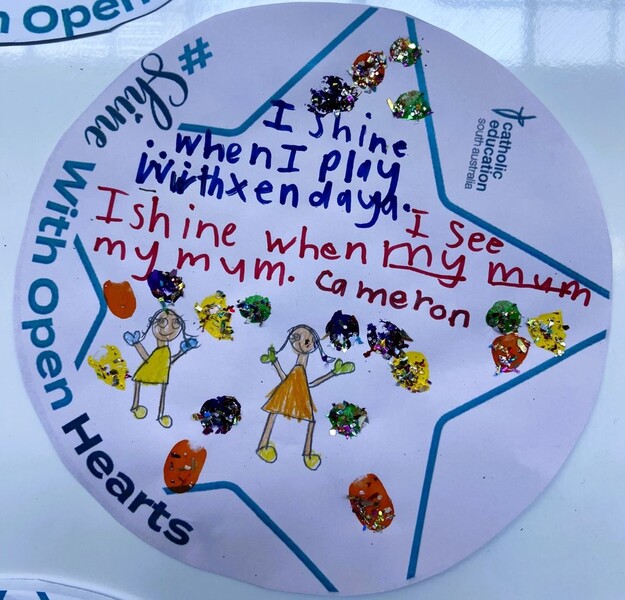 n Open
#Shine With Open Hearts
catholic
education
south australia
I shine
when I play
with xendaya.
I see
I shine when my mum
my mum. cameron